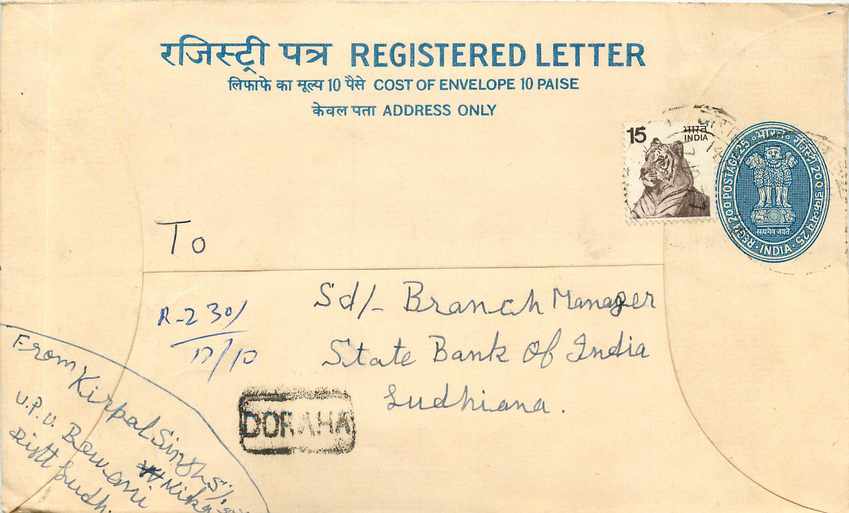 रजिस्ट्री पत्र REGISTERED LETTER
लिफाफे का मूल्य 10 पैसे COST OF ENVELOPE 10 PAISE
केवल पता ADDRESS ONLY
15 भारत INDIA
REGN 200 POSTAGE 25 भारत रजिस्ट्री 200 डाक-व्यय 25 INDIA
सत्यमेव जयते
To
R-2301
17/10
Sd/- Branch Manager
State Bank of India
Ludhiana.
DORAHA
From Kirpal Singh S/o
V.P.O.
Distt Ludh.